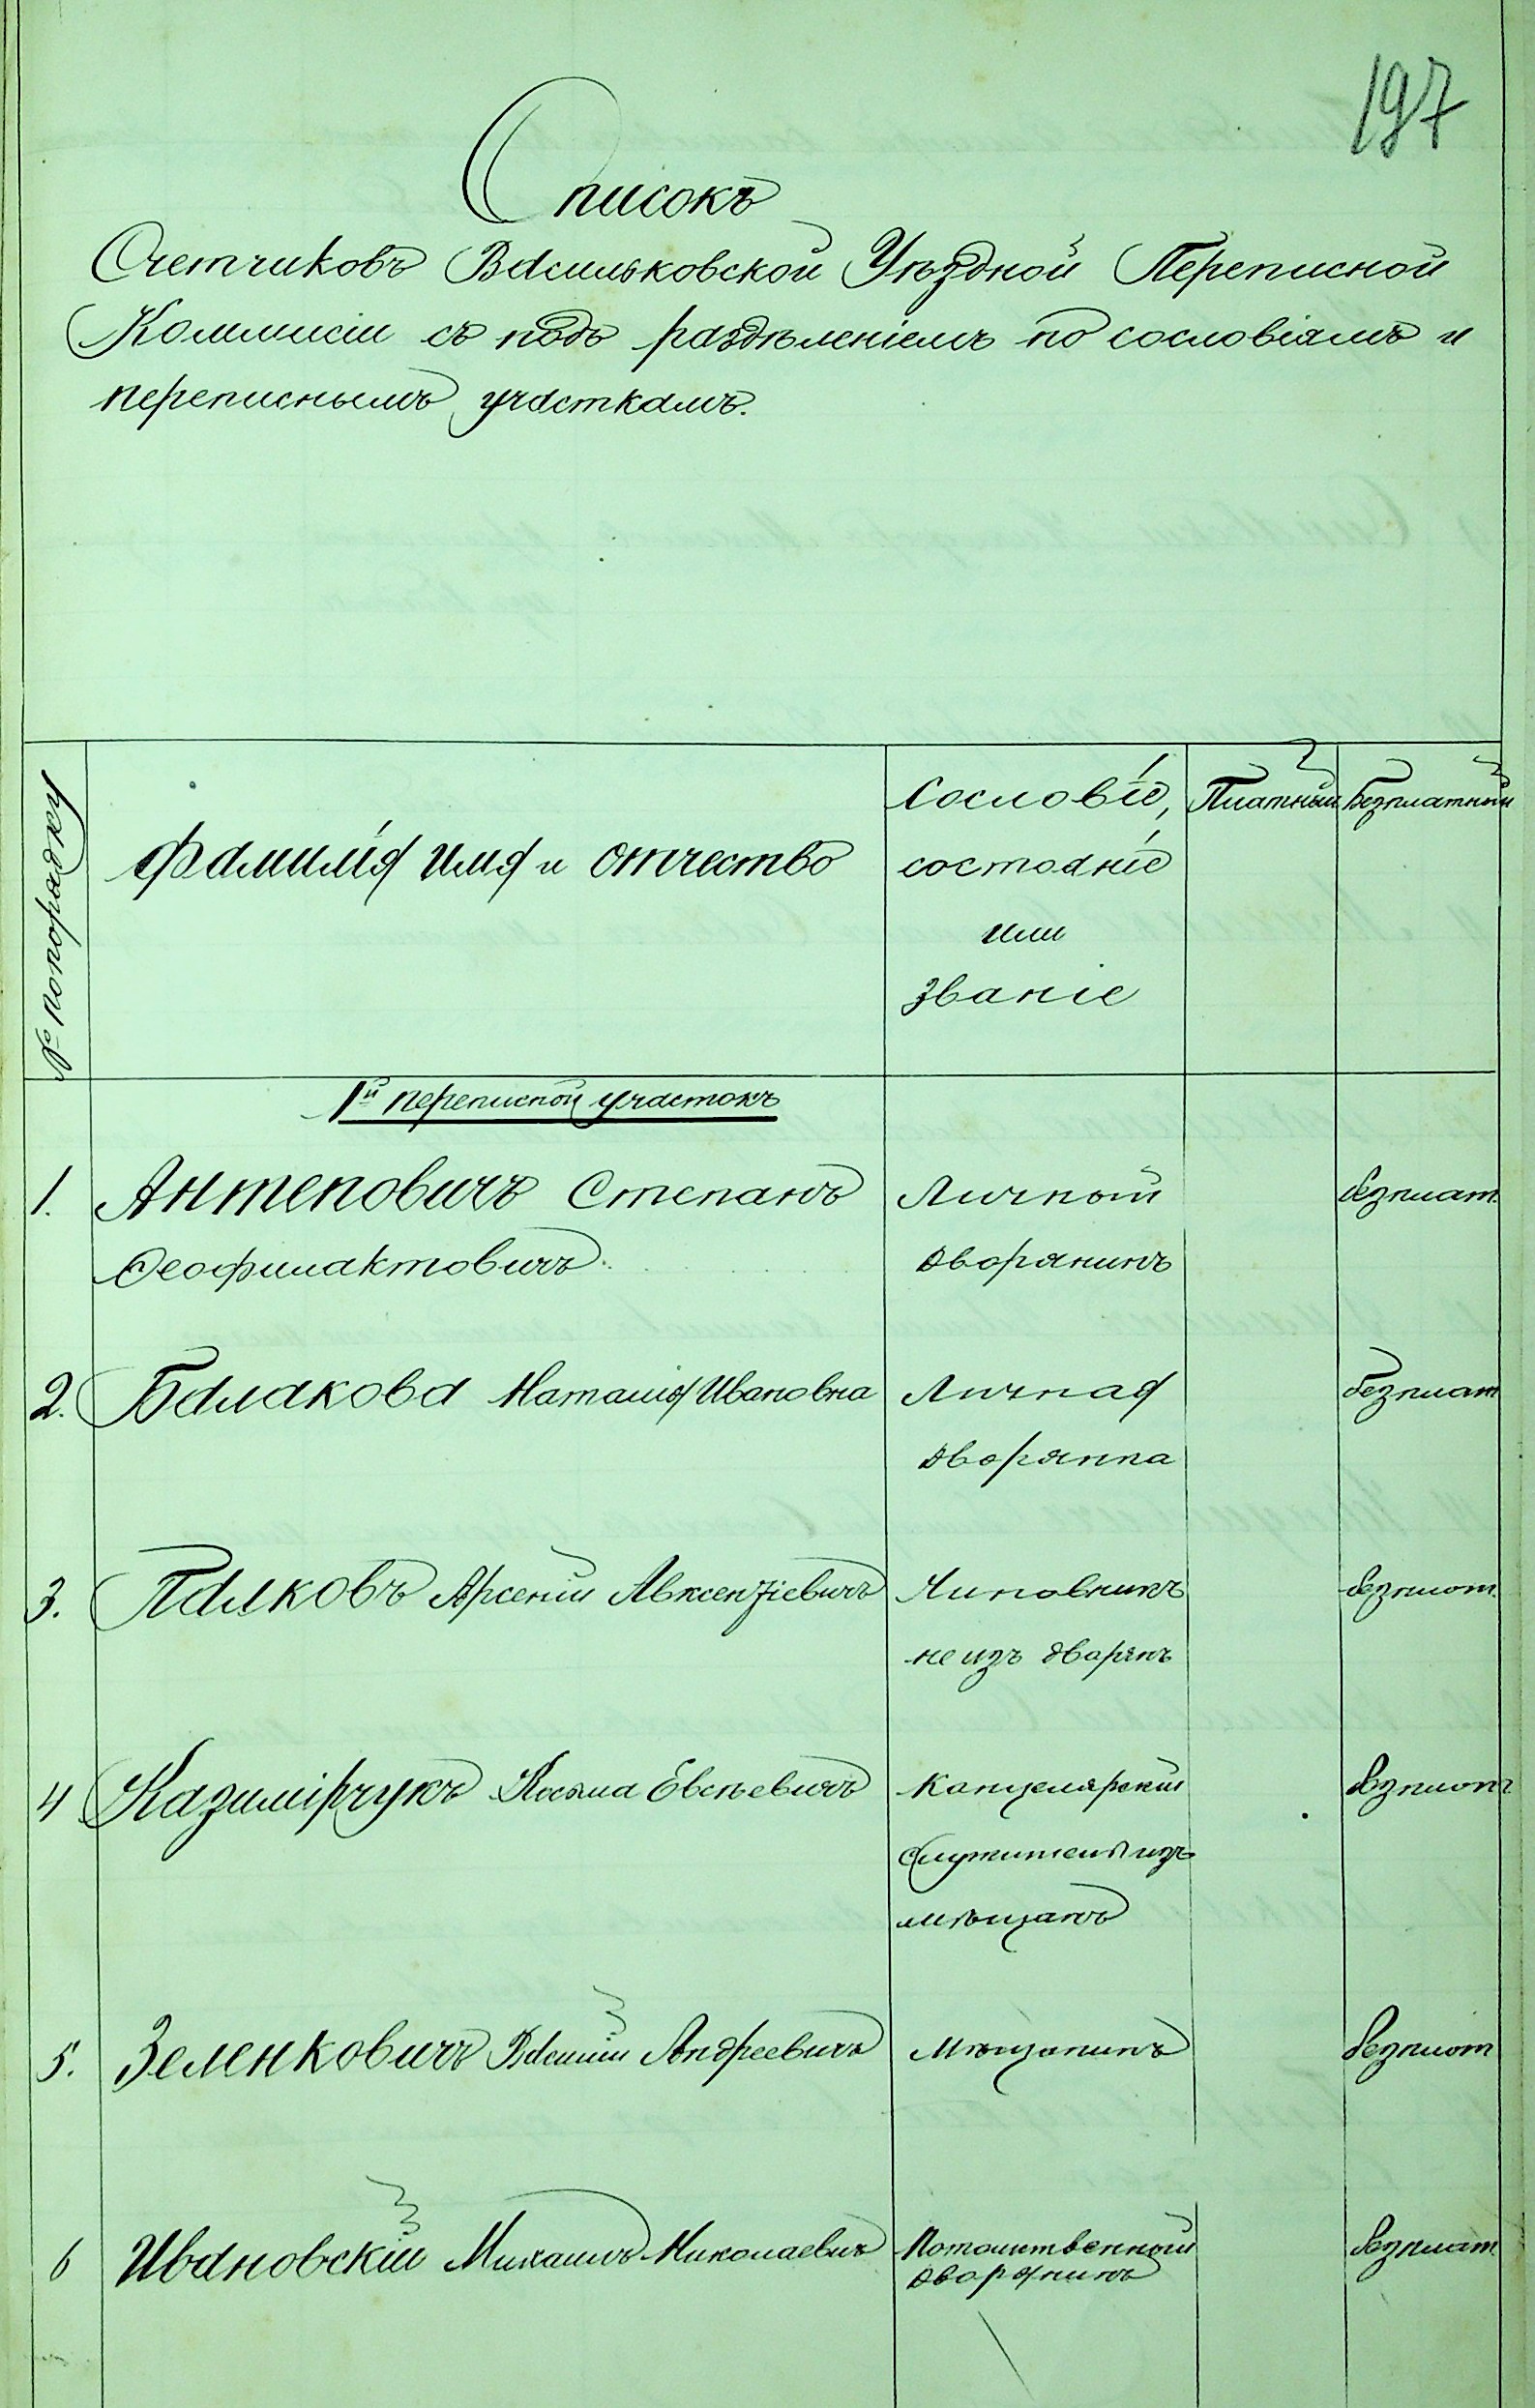 197
Списокъ
Счетчиковъ Васильковской Уѣздной Переписной
Коммисіи съ подъ раздѣленіемъ по сословіямъ и
переписнымъ участкамъ.
№ по порядку
Фамилія Имя и отчество
Сословіе,
состояніе
или
званіе
Платный
Безплатный
1й переписной участокъ
1. Антеповичъ Степанъ Личный безплат.
Ѳеофилактовичъ дворянинъ
2. Балакова Наталія Ивановна Личная безплат
дворянка
3. Палковъ Арсеній Авксентіевичъ Чиновникъ безплат.
не изъ дворянъ
4 Казимірчукъ Косьма Евсѣевичъ Канцелярскій безплат
служитель изъ
мѣщанъ
5. Зеленковичъ Василій Андреевичъ Мѣщанинъ безплат
6 Ивановскій Михаилъ Николаевичъ Потомственный безплат
дворянинъ